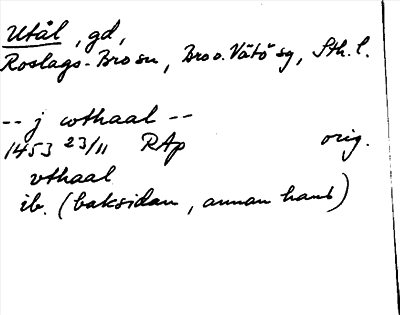 Utål, gd,
Roslags-Bro sn, Bro o. Vätö sg, Sth. l.
-- j wthaal --
1453 23/11 RAp orig.
vthaal
ib. (baksidan, annan hand)